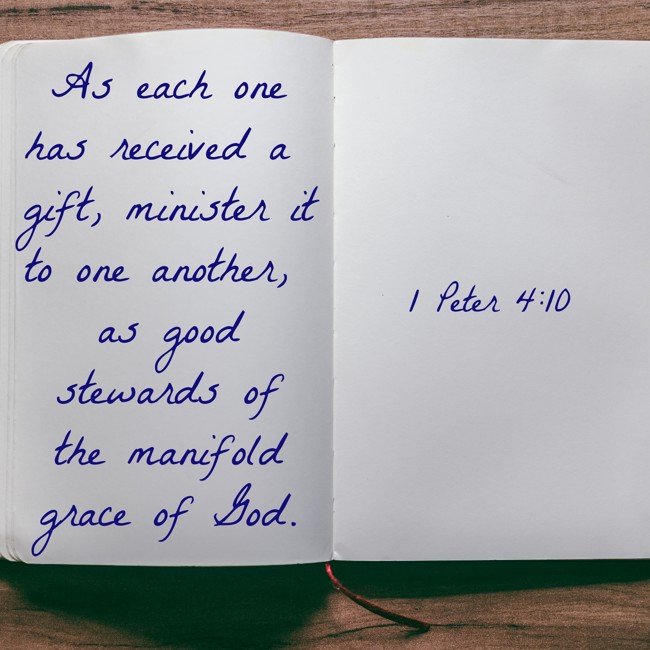 As each one
has received a
gift, minister it
to one another,
as good
stewards of
the manifold
grace of God.
1 Peter 4:10